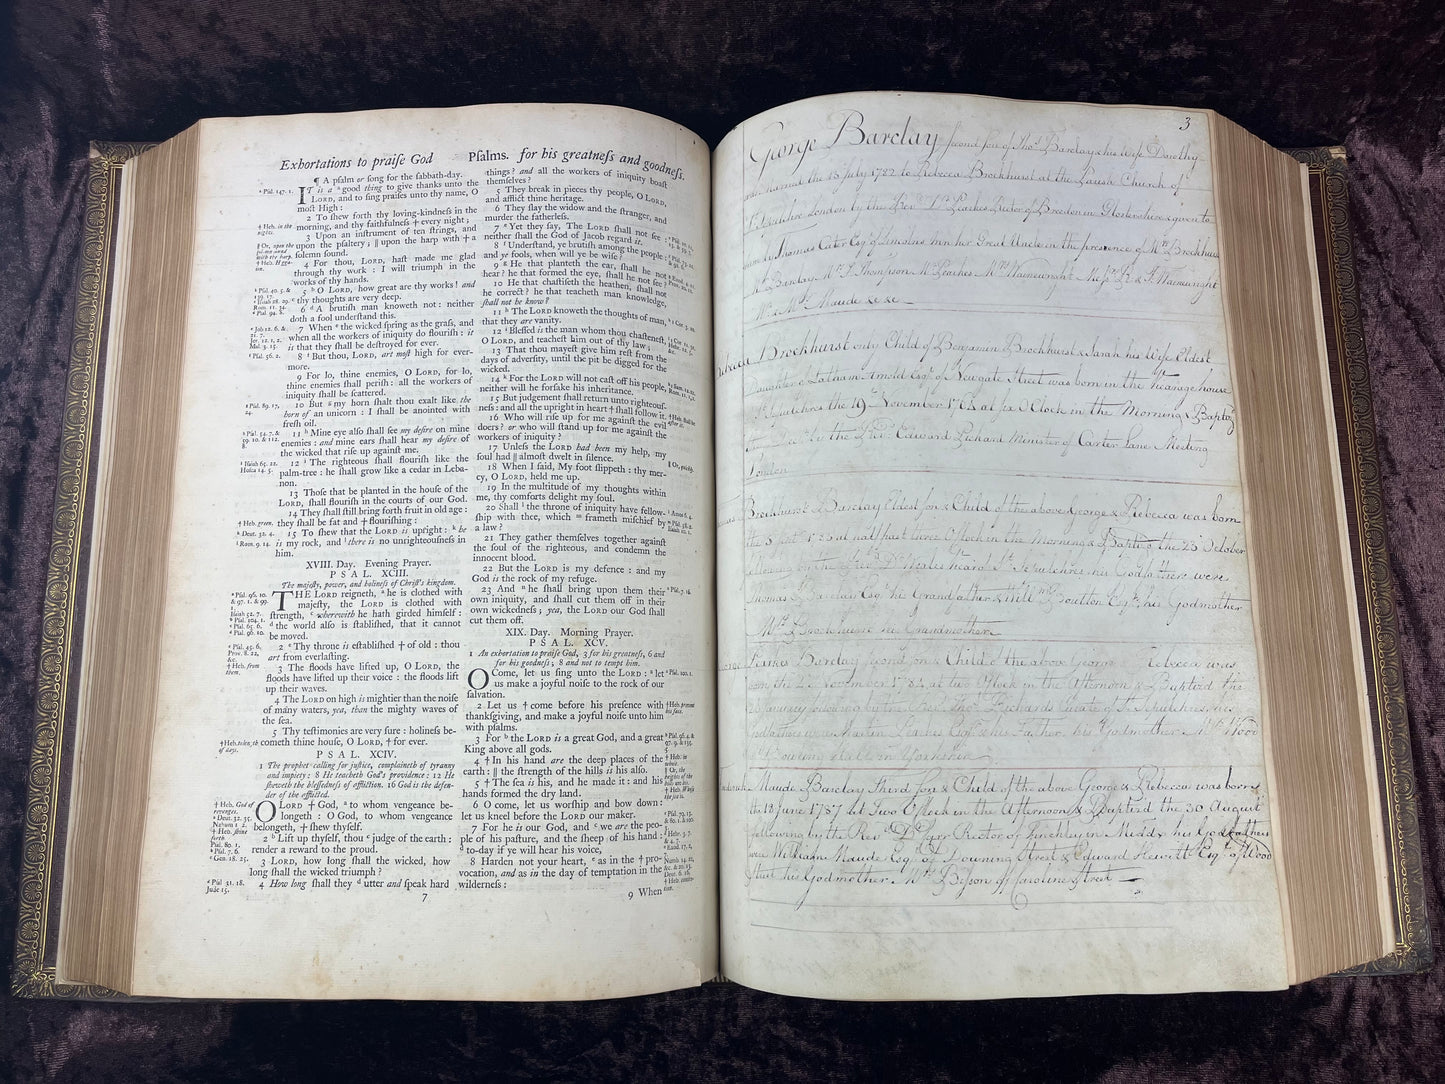 Exhortations to praiſe God
Pſalms.
for his greatneſs and goodneſs.
¶ A pſalm or ſong for the ſabbath-day.
IT is a ᵃ good thing to give thanks unto the
LORD, and to ſing praiſes unto thy name, O
moſt High:
2 To ſhew forth thy loving-kindneſs in the
morning, and thy faithfulneſs † every night;
3 Upon an inſtrument of ten ſtrings, and
upon the pſaltery; ‖ upon the harp with † a
ſolemn ſound.
4 For thou, LORD, haſt made me glad
through thy work: I will triumph in the
works of thy hands.
5 ᵇ O LORD, how great are thy works! and
ᶜ thy thoughts are very deep.
6 ᵈ A brutiſh man knoweth not: neither
doth a fool underſtand this.
7 When ᵉ the wicked ſpring as the graſs, and
when all the workers of iniquity do flouriſh: it
is that they ſhall be deſtroyed for ever.
8 ᶠ But thou, LORD, art moſt high for ever-
more.
9 For lo, thine enemies, O LORD, for lo,
thine enemies ſhall periſh: all the workers of
iniquity ſhall be ſcattered.
10 But ᵍ my horn ſhalt thou exalt like the
horn of an unicorn: I ſhall be anointed with
freſh oil.
11 ʰ Mine eye alſo ſhall ſee my deſire on mine
enemies: and mine ears ſhall hear my deſire of
the wicked that riſe up againſt me.
12 ⁱ The righteous ſhall flouriſh like the
palm-tree: he ſhall grow like a cedar in Leba-
non.
13 Thoſe that be planted in the houſe of the
LORD, ſhall flouriſh in the courts of our God.
14 They ſhall ſtill bring forth fruit in old age:
they ſhall be fat and † flouriſhing:
15 To ſhew that the LORD is upright: ᵏ he
is my rock, and ˡ there is no unrighteouſneſs in
him.
XVIII. Day. Evening Prayer.
PSAL. XCIII.
The majeſty, power, and holineſs of Chriſt's kingdom.
THE LORD reigneth, ᵃ he is clothed with
majeſty, the LORD is clothed with
ſtrength, ᶜ wherewith he hath girded himſelf:
ᵈ the world alſo is ſtabliſhed, that it cannot
be moved.
2 ᵉ Thy throne is eſtabliſhed † of old: thou
art from everlaſting.
3 The floods have lifted up, O LORD, the
floods have lifted up their voice: the floods lift
up their waves.
4 The LORD on high is mightier than the noiſe
of many waters, yea, than the mighty waves of
the ſea.
5 Thy teſtimonies are very ſure: holineſs be-
cometh thine houſe, O LORD, † for ever.
PSAL. XCIV.
1 The prophet calling for juſtice, complaineth of tyranny
and impiety: 8 He teacheth God's providence: 12 He
ſheweth the bleſſedneſs of affliction. 16 God is the defen-
der of the afflicted.
O LORD † God, ᵃ to whom vengeance be-
longeth: O God, to whom vengeance
belongeth, † ſhew thyſelf.
2 ᵇ Lift up thyſelf, thou ᶜ judge of the earth:
render a reward to the proud.
3 LORD, how long ſhall the wicked, how
long ſhall the wicked triumph?
4 How long ſhall they ᵈ utter and ſpeak hard
7
things? and all the workers of iniquity boaſt
themſelves?
5 They break in pieces thy people, O LORD,
and afflict thine heritage.
6 They ſlay the widow and the ſtranger, and
murder the fatherleſs.
7 ᵉ Yet they ſay, The LORD ſhall not ſee:
neither ſhall the God of Jacob regard it.
8 ᶠ Underſtand, ye brutiſh among the people:
and ye fools, when will ye be wiſe?
9 ᵍ He that planteth the ear, ſhall he not
hear? he that formed the eye, ſhall he not ſee?
10 He that chaſtiſeth the heathen, ſhall not
he correct? he that teacheth man knowledge,
ſhall not he know?
11 ʰ The LORD knoweth the thoughts of man,
that they are vanity.
12 ⁱ Bleſſed is the man whom thou chaſteneſt,
O LORD, and teacheſt him out of thy law;
13 That thou mayeſt give him reſt from the
days of adverſity, until the pit be digged for the
wicked.
14 ᵏ For the LORD will not caſt off his people,
neither will he forſake his inheritance.
15 But judgement ſhall return unto righteouſ-
neſs: and all the upright in heart † ſhall follow it.
16 Who will riſe up for me againſt the evil
doers? or who will ſtand up for me againſt the
workers of iniquity?
17 Unleſs the LORD had been my help, my
ſoul had ‖ almoſt dwelt in ſilence.
18 When I ſaid, My foot ſlippeth: thy mer-
cy, O LORD, held me up.
19 In the multitude of my thoughts within
me, thy comforts delight my ſoul.
20 Shall ˡ the throne of iniquity have fellow-
ſhip with thee, which ᵐ frameth miſchief by
a law?
21 They gather themſelves together againſt
the ſoul of the righteous, and condemn the
innocent blood.
22 But the LORD is my defence: and my
God is the rock of my refuge.
23 And ⁿ he ſhall bring upon them their
own iniquity, and ſhall cut them off in their
own wickedneſs; yea, the LORD our God ſhall
cut them off.
XIX. Day. Morning Prayer.
PSAL. XCV.
1 An exhortation to praiſe God, 3 for his greatneſs, 6 and
for his goodneſs; 8 and not to tempt him.
O Come, let us ſing unto the LORD: ᵃ let
us make a joyful noiſe to the rock of our
ſalvation.
2 Let us † come before his preſence with
thankſgiving, and make a joyful noiſe unto him
with pſalms.
3 For ᵇ the LORD is a great God, and a great
King above all gods.
4 † In his hand are the deep places of the
earth: ‖ the ſtrength of the hills is his alſo.
5 † The ſea is his, and he made it: and his
hands formed the dry land.
6 O come, let us worſhip and bow down:
let us kneel before the LORD our maker.
7 For he is our God, and ᶜ we are the peo-
ple of his paſture, and the ſheep of his hand:
ᵈ to-day if ye will hear his voice,
8 Harden not your heart, ᵉ as in the † pro-
vocation, and as in the day of temptation in the
wilderneſs:
9 When
3
George Barclay second son of Thos. Barclay & his Wife Dorothy
was married the 15 July 1782 to Rebecca Brockhurst at the Parish Church of
London by the Revd. Mr. Leakes Rector of Breedon in Glostershire & given to
by Thomas Cater Esqr. of Lincolns Inn her Great Uncle in the presence of Mrs. Brockhurst
Barclay Mr. J. Thompson Mr. Leakes Mrs. Wainwright Miss R. & J. Wainwright
Mr. & Mrs. Maude &c &c
Rebecca Brockhurst only Child of Benjamin Brockhurst & Sarah his Wife Eldest
Daughter of Latham Arnold Esqr. of Newgate Street was born in the Vicarage house
the 19 November 1762 at six o'Clock in the Morning & Baptizd
by the Revd. Edward Pickard Minister of Carter Lane Meeting
London
Brockhurst Barclay Eldest son & Child of the above George & Rebecca was born
at half past three o'Clock in the Morning & Baptzd. the 23 October
following by the Revd. Dr. St. Sepulchres, his Godfathers were
Thomas Barclay Esqr. his Grandfather & Willm. Boulton Esqr. his Godmother
Mrs. Brockhurst his Grandmother
George Barclay second son & Child of the above George Rebecca was
born the 2 November 1784 at two o'Clock in the Afternoon & Baptizd the
January following by the Revd. Richards Curate of St. Sepulchres, his
Godfathers were Martin Leakes Esqr. & his Father, his Godmother Mrs. Wood
of Hall in Yorkshire
Frederick Maude Barclay Third son & Child of the above George & Rebecca was born
the 12 June 1787 at Two o'Clock in the Afternoon & Baptizd the 30 August
following by the Revd. Dr. Parr Rector of Finchley in Middx his Godfathers
were William Maude Esqr. of Downing Street & Edward Hewitt Esqr. of Wood
Street his Godmother Mrs. Bisson of Caroline Street